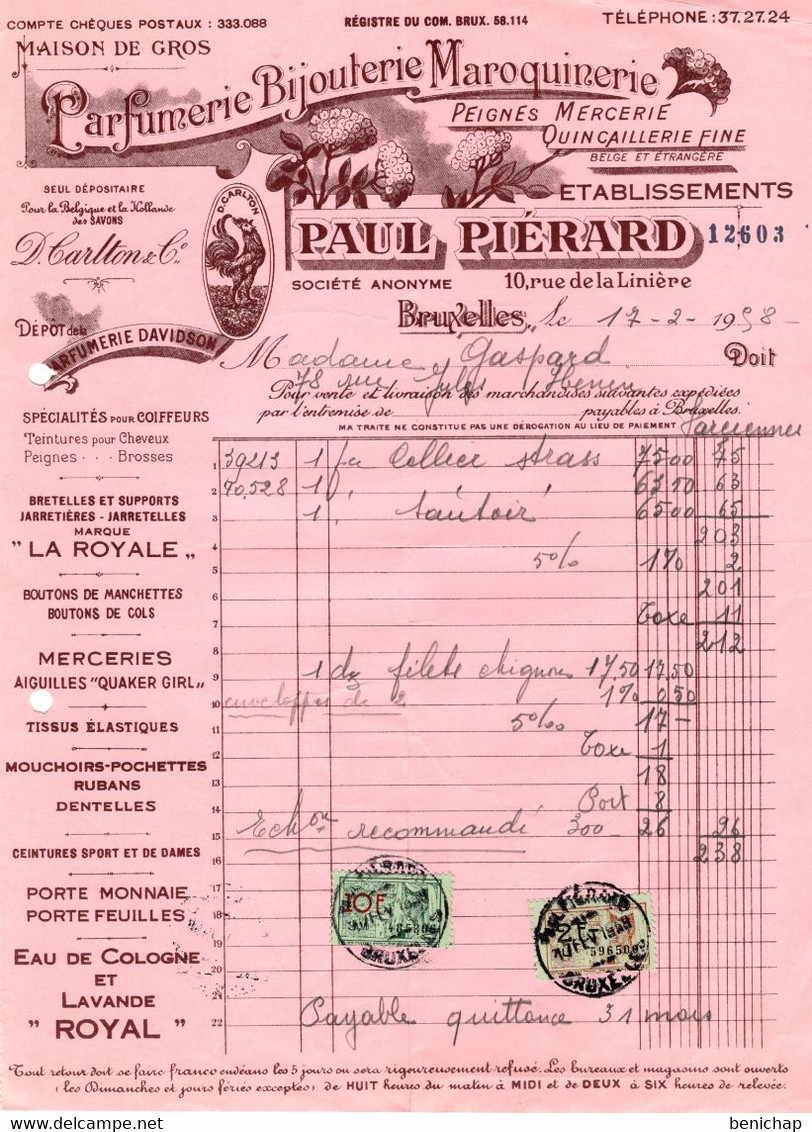 COMPTE CHÈQUES POSTAUX : 333.088
RÉGISTRE DU COM. BRUX. 58.114
TÉLÉPHONE : 37.27.24
MAISON DE GROS
Parfumerie Bijouterie Maroquinerie
PEIGNES MERCERIE
QUINCAILLERIE FINE
BELGE ET ÉTRANGÈRE
SEUL DÉPOSITAIRE
Pour la Belgique et la Hollande
des SAVONS
D. Carlton & Cº
D. CARLTON
ETABLISSEMENTS
PAUL PIÉRARD
12603
SOCIÉTÉ ANONYME
10, rue de la Linière
Bruxelles, Le 17-2-1958-
DÉPÔT de la
PARFUMERIE DAVIDSON
Madame Gaspard Doit
78 rue Jules
Pour vente et livraison des marchandises suivantes expédiées
par l'entremise de payables à Bruxelles.
MA TRAITE NE CONSTITUE PAS UNE DÉROGATION AU LIEU DE PAIEMENT
Farciennes
SPÉCIALITÉS POUR COIFFEURS
Teintures pour Cheveux
Peignes . . . Brosses
BRETELLES ET SUPPORTS
JARRETIÈRES - JARRETELLES
MARQUE
" LA ROYALE "
BOUTONS DE MANCHETTES
BOUTONS DE COLS
MERCERIES
AIGUILLES "QUAKER GIRL"
TISSUS ÉLASTIQUES
MOUCHOIRS-POCHETTES
RUBANS
DENTELLES
CEINTURES SPORT ET DE DAMES
PORTE MONNAIE
PORTE FEUILLES
EAU DE COLOGNE
ET
LAVANDE
" ROYAL "
1 39213 1 Collier strass 75 00 75
2 70,528 1 " " 63
3 1 " Sautoir 65 00 65
4 203
5 5% 2
6 201
7 Taxe 11
8 212
9 1 dz filets chignons 17,50 17,50
10 enveloppes de 2 0,50
11 17 -
12 Taxe 1
13 18
14 Port 8
15 recommandé 300 26
16 238
17
18
19
22
10 F
2 F
PAUL PIERARD
BRUXELLES
Payable quittance 31 mars
Tout retour doit se faire franco endéans les 5 jours ou sera rigoureusement refusé. Les bureaux et magasins sont ouverts
(les Dimanches et jours fériés exceptés) de HUIT heures du matin à MIDI et de DEUX à SIX heures de relevée.
benichap